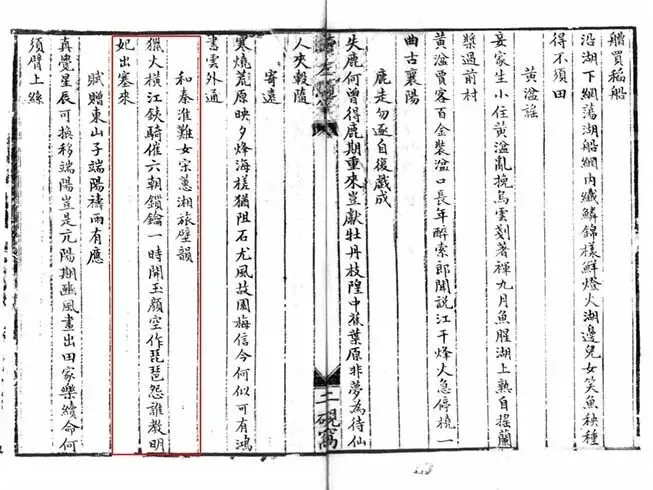 買稻船
沿湖下網蕩湖船網內纖鱗錦樣鮮燈火湖邊兒女笑魚秧種
得不須田
黃湓謠
妾家生小住黃湓亂挽烏雲刻著襌九月魚腥湖上熟自搖蘭
槳過前村
黃湓賈客百金裝湓口長年醉索郎聞說江干烽火急停橈一
曲古襄陽
鹿走勿逐自復戲成
失鹿何曾得鹿期重來豈獻牡丹枝隍中蕉葉原非夢為待仙
人夾轂隨
二 硯窩
寄遠
寒燒荒原映夕烽海槎猶阻石尤風故園梅信今何似可有鴻
書雲外通
和秦淮難女宗蕙湘旅壁韻
獵火橫江鐵騎催六朝鎖鑰一時開玉顏空作琵琶怨誰教明
妃出塞來
賦贈東山子端陽禱雨有應
真覺星辰可換移端陽豈是亢陽期豳風畫出田家樂續命何
須臂上絲